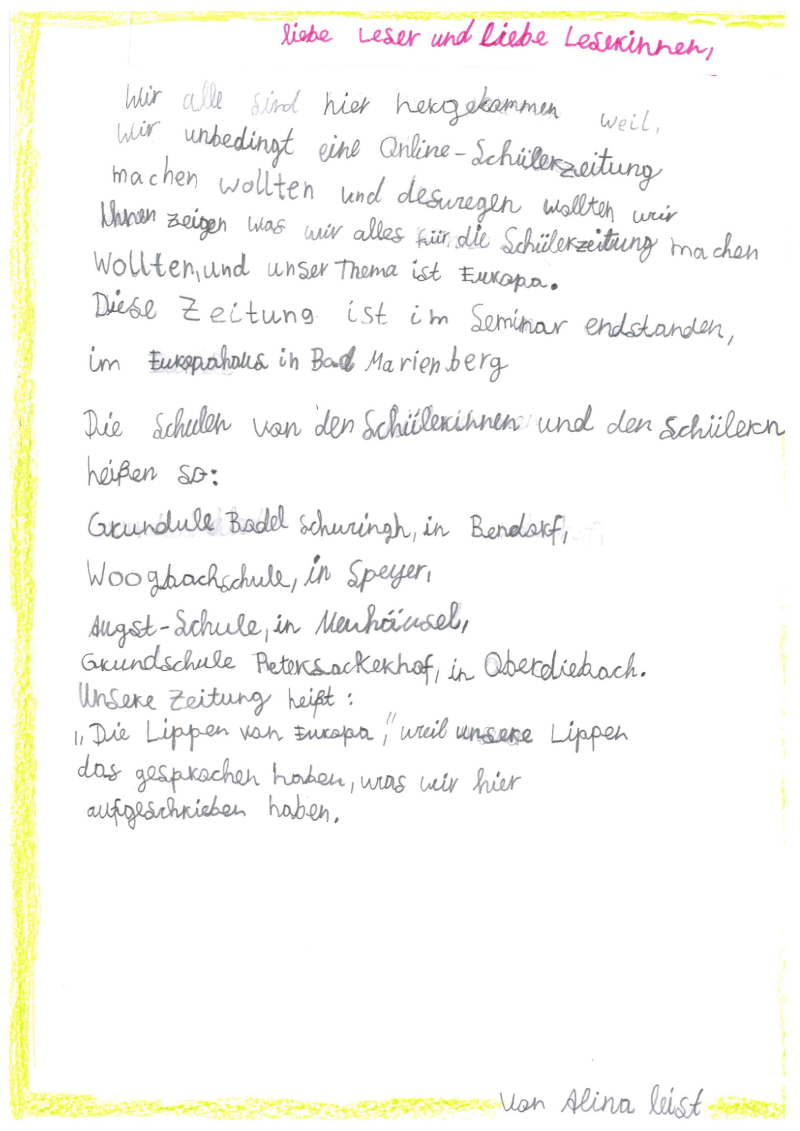 liebe Leser und liebe Leserinnen,
Wir alle sind hier hergekommen weil,
wir unbedingt eine Online-Schülerzeitung
machen wollten und deswegen wollten wir
Ihnen zeigen was wir alles für die Schülerzeitung machen
Wollten, und unser Thema ist Europa.
Diese Zeitung ist im Seminar endstanden,
im Europahaus in Bad Marienberg
Die Schulen von den Schülerinnen und den Schülern
heißen so:
Grundule Bodelschwingh, in Bendorf,
Woogbachschule, in Speyer,
Augst-Schule, in Neuhäusel,
Grundschule Petersackerhof, in Oberdiebach.
Unsere Zeitung heißt:
„Die Lippen von Europa," weil unsere Lippen
das gesprochen haben, was wir hier
aufgeschrieben haben.
Von Alina leist